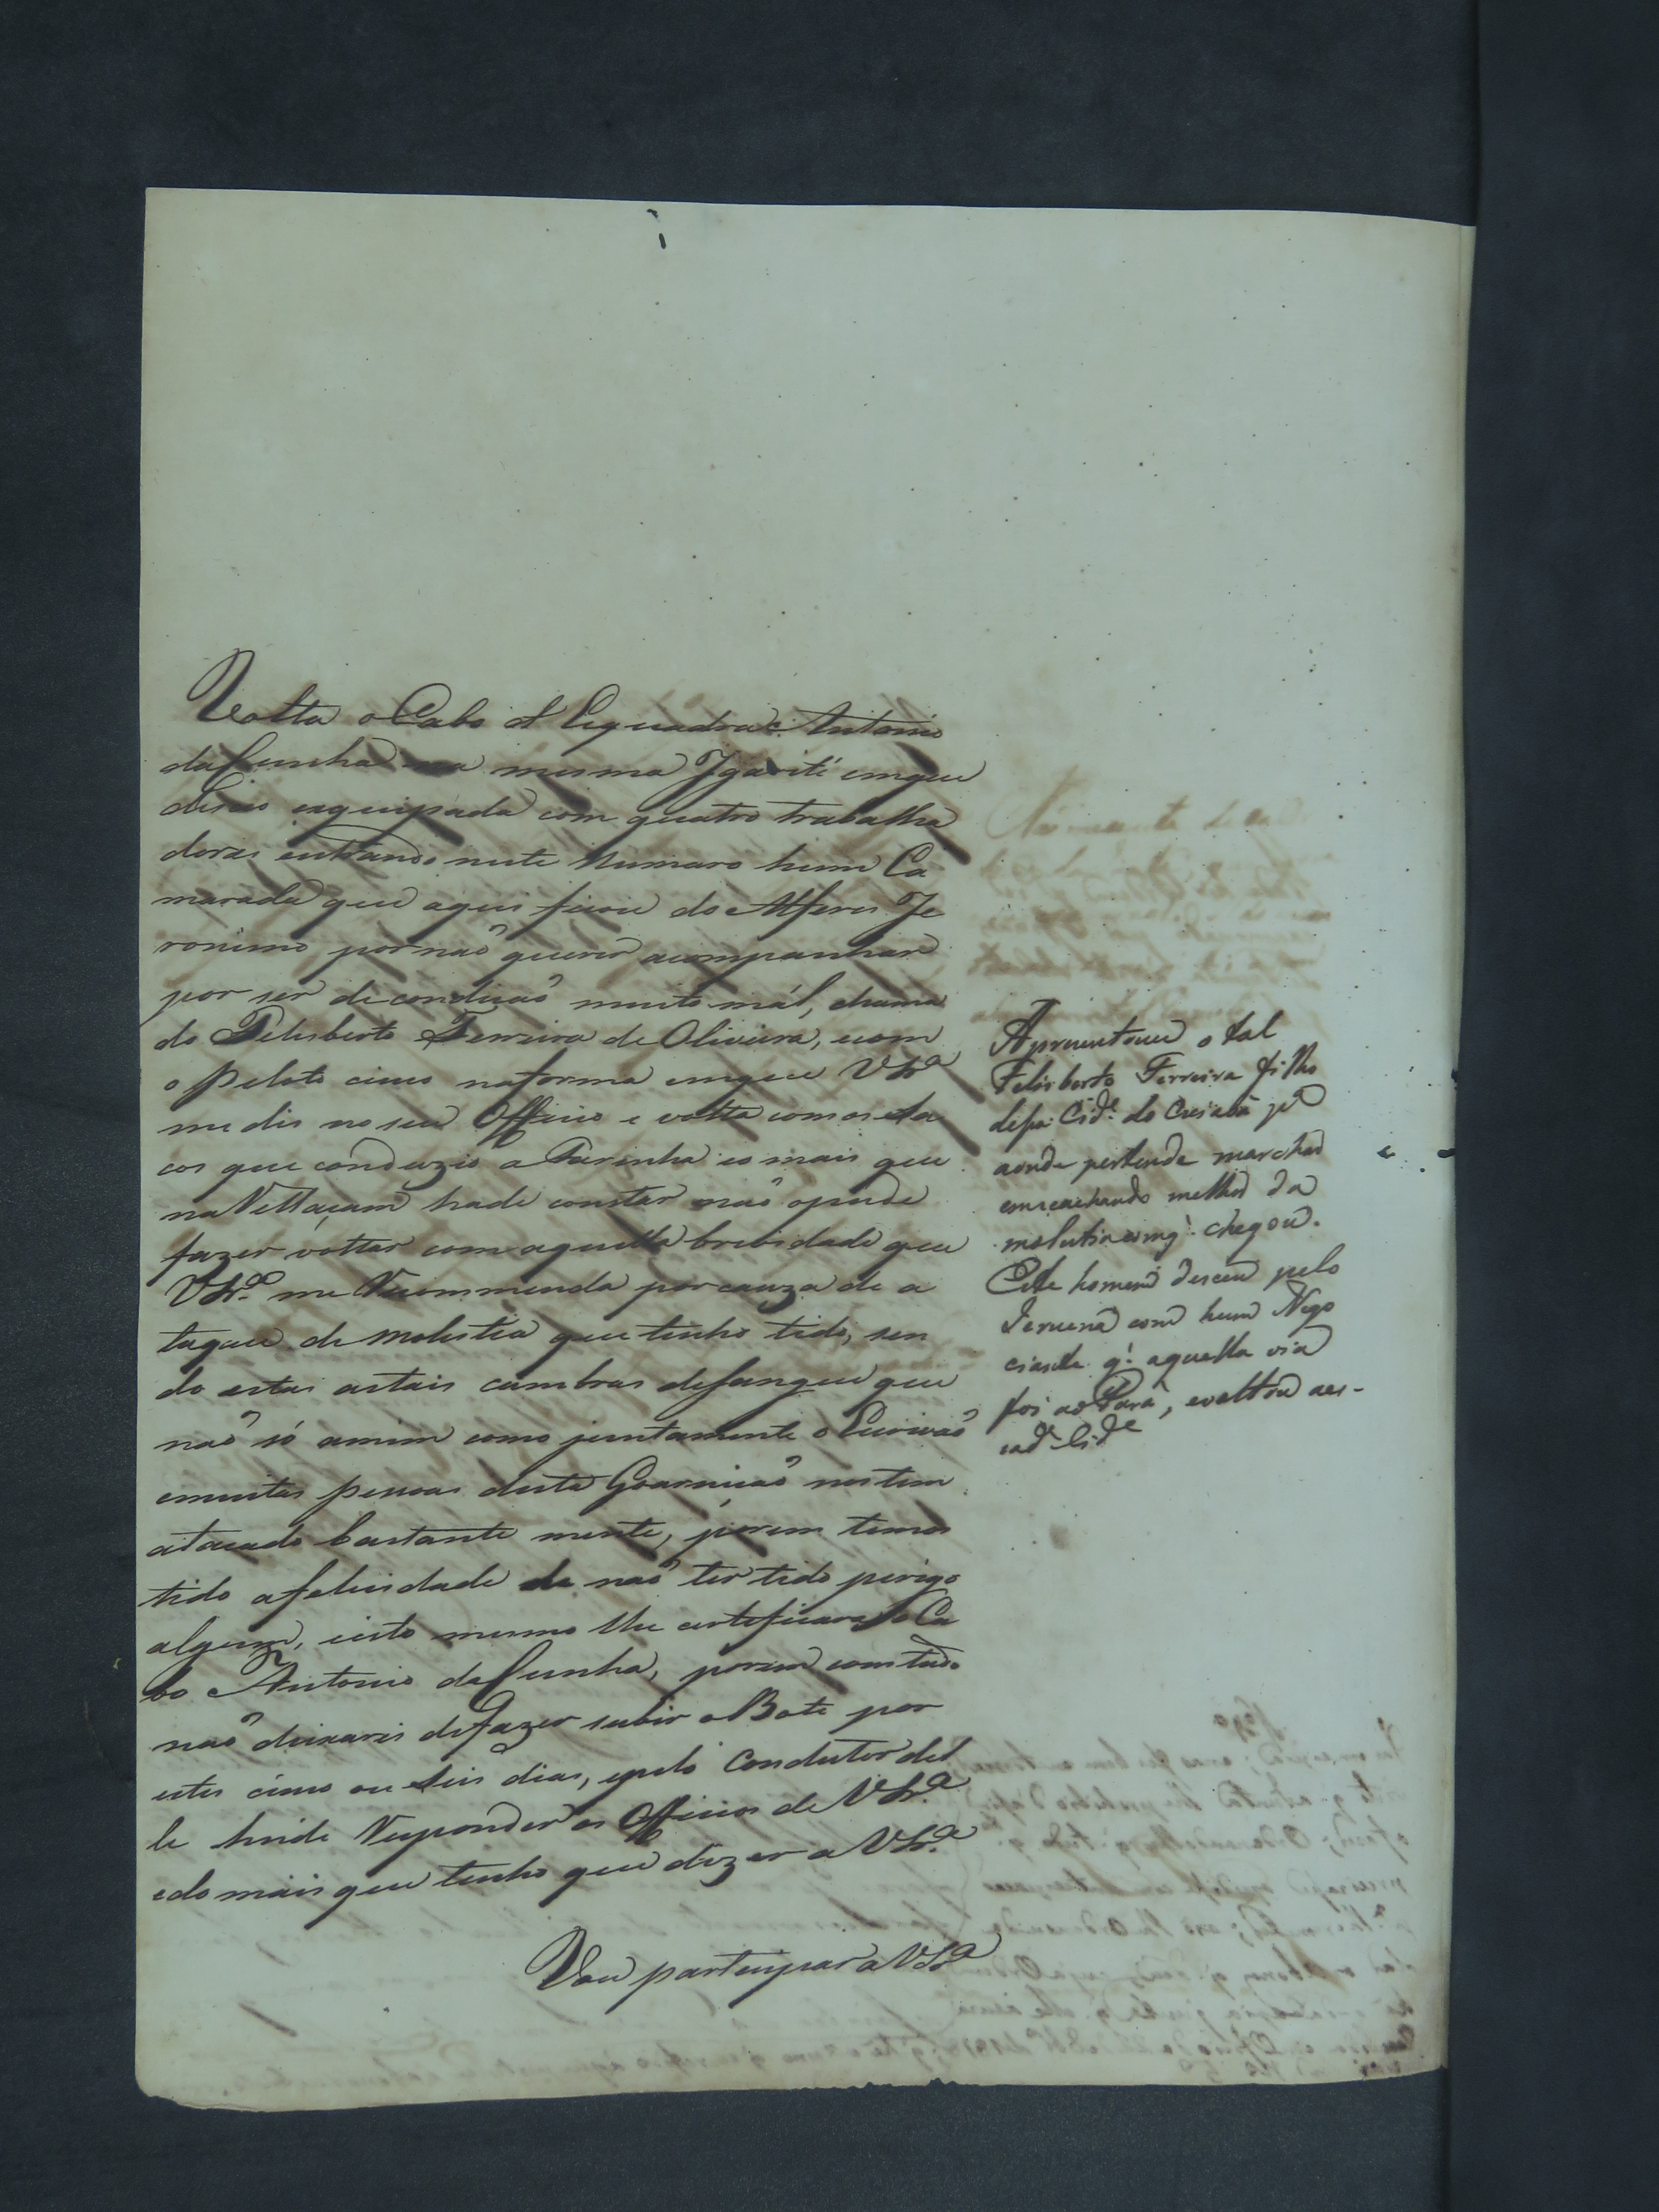 Volta o Cabo d Esquadra Antonio
da Cunha na mesma Igarité emque
desceo esquipada com quatro trabalha
dores entrando neste Numaro hum Ca
marada que aqui ficou do Alferes Je
ronimo por naõ querer acompanhar
por ser de condicaõ muito mál, chama
do Felisberto Ferreira de Oliveira, ecom
o Peloto cinco naforma emque VSr.ª
me dis no seu Officio e volta com os sa
cos que conduzio a Farinha eo mais que
na Rellaçam hade constar naõ opude
fazer voltar com aquella brevidade que
VSr.ª me Recommenda por cauza de a
taques de molestia que tenho tido, sen
do estas astais cambras desangue que
naõ só amim como juntamente o Escrivaõ
emuitas pessoas desta Goarnicaõ nos tem
atacado bastante mente, porem temos
tido afelicidade de naõ ter tido perigo
algum, eisto mesmo lhe certeficara o Ca
bo Antonio da Cunha, porem com tudo
naõ deixarei defazer subir o Bote por
estes cinco ou seis dias, epelo Condutor del
le heide Responder os Officios de VSr.ª
edo mais que tenho que dizer a VSr.ª
Aprezentouce o tal
Felisberto Ferreira filho
desa Cid.e do Cuiabá p.ª
aonde pertende marchar
emceachando melhor da
molestia comq. chegou.
Este homem desceu pelo
Jeruena com hum Nego
ciante q. aquella via
foi ao Pará, evoltou aes-
sad.ª Cid.e
Vou participar a VSr.ª